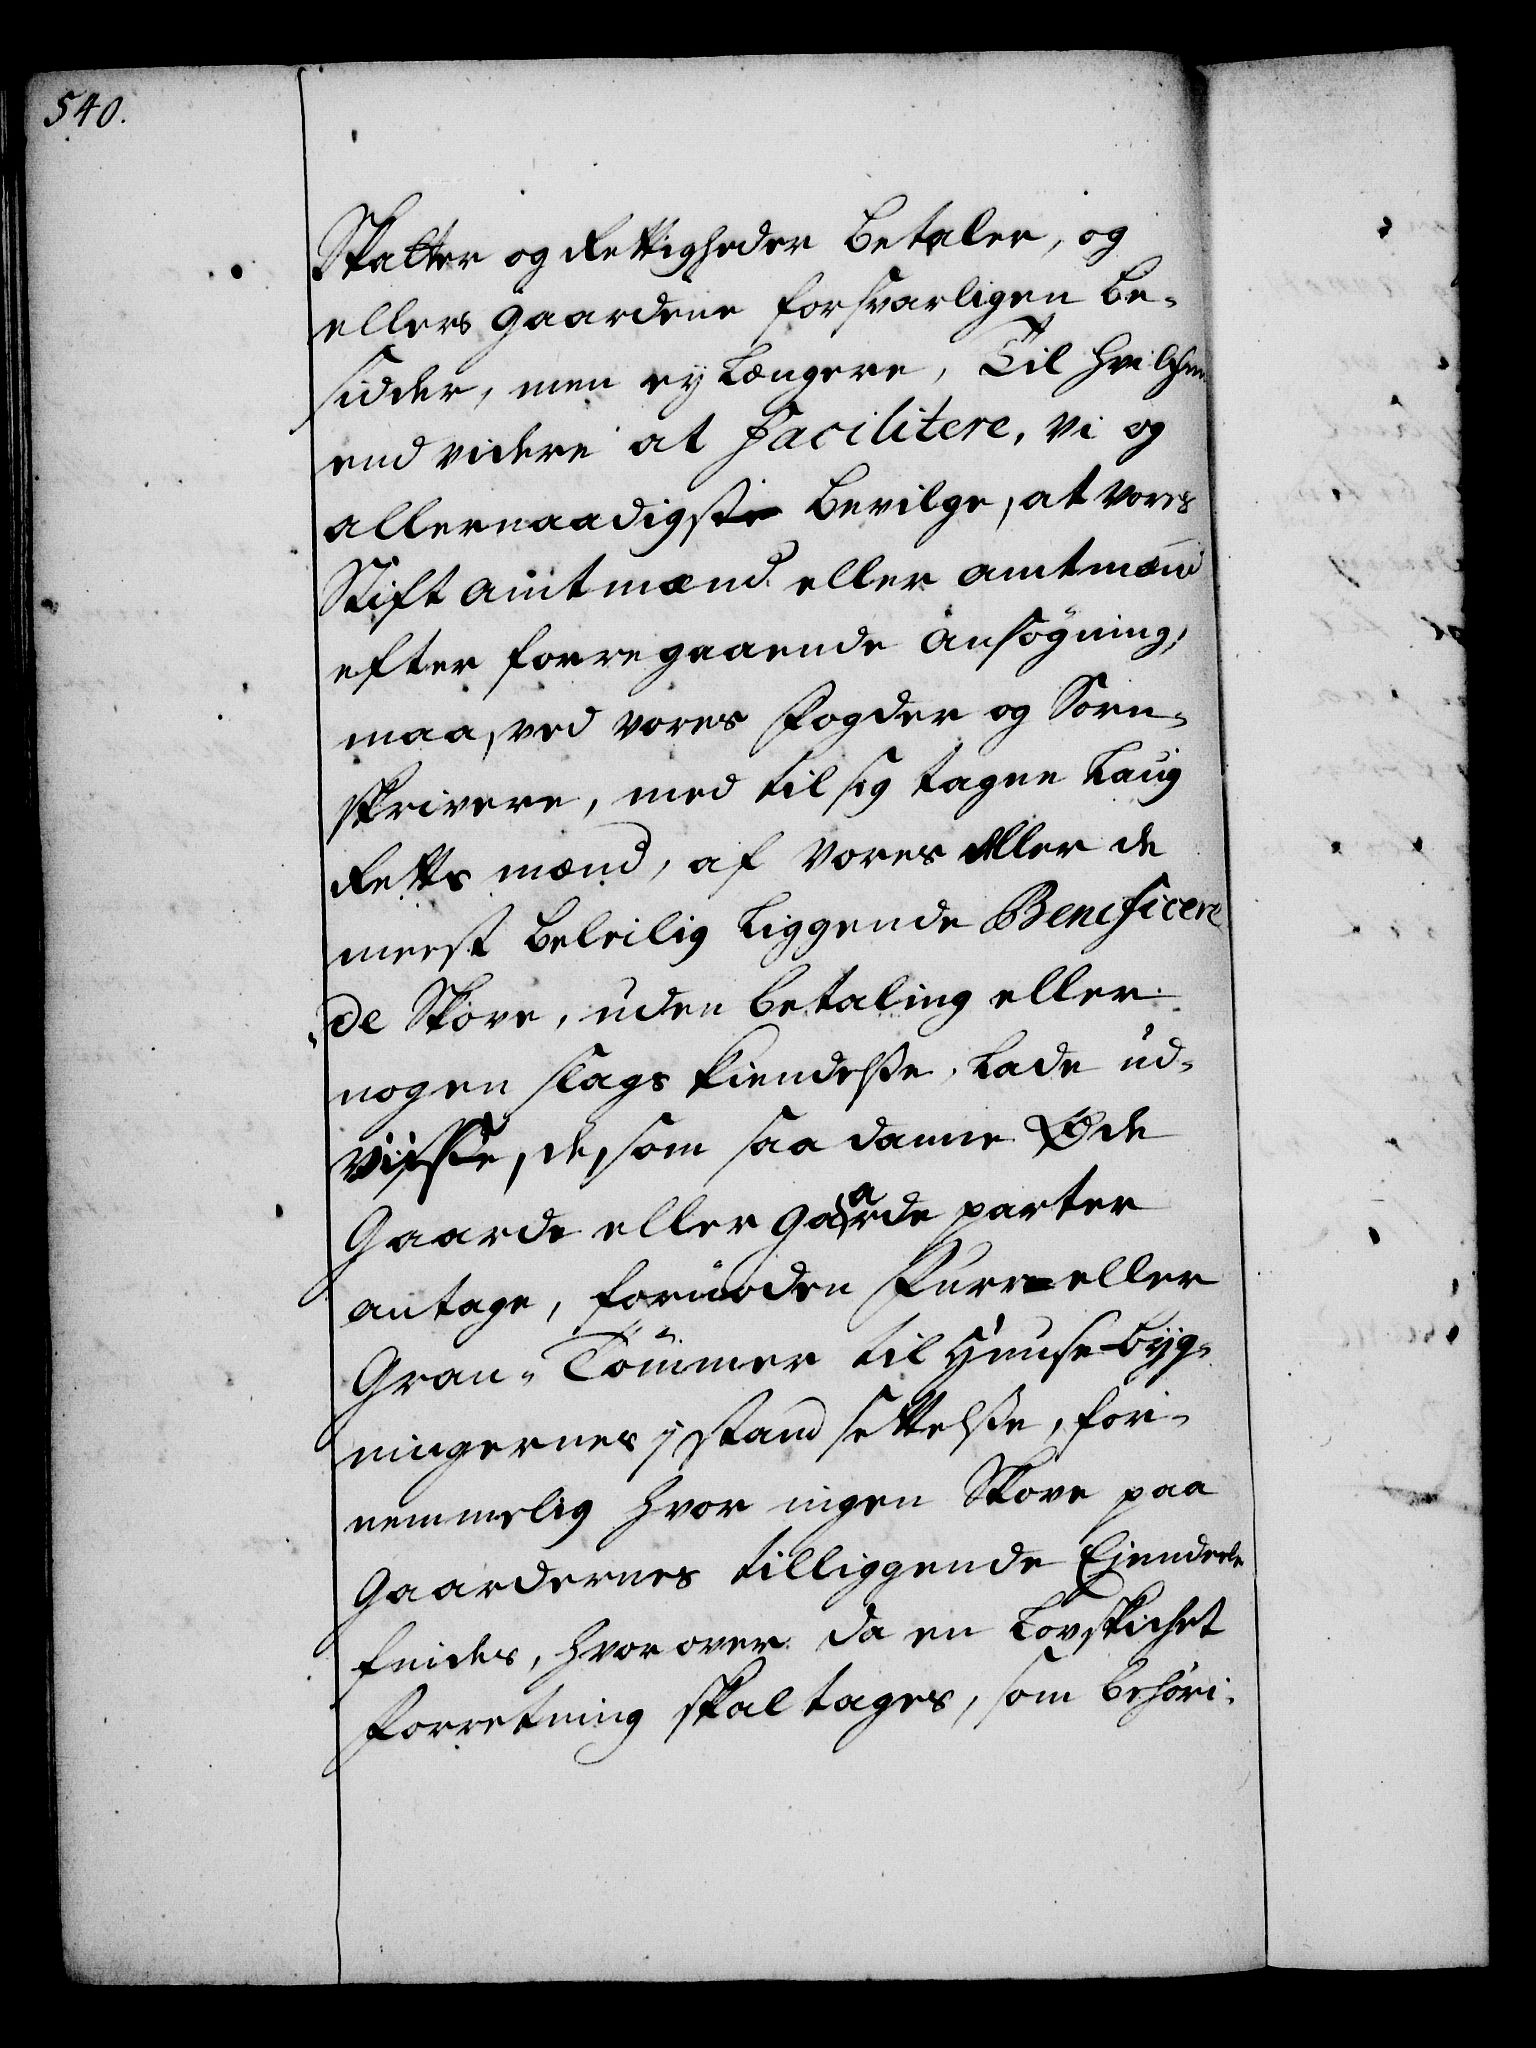 540.
Skatter og Rettigheder betaler, og
ellers Gaardene forsvarligen be-
sidder, men ey længere, Til hvilchen
end videre at facilitere, vi og
allernaadigst bevilge, at vores
Stift amtmænd eller amtmænd
efter forregaaende ansøgning,
maa, ved vores Fogder og Sorn-
skrivere, med til sig tagne Laug
Retts mænd, af vores eller de
meest beleilig liggende Beneficere
de Skove, uden betaling eller
nogen slags kiendelsse, lade ud-
viisse, de, som saa danne Øde
Gaarde eller Gaarde parter
antage, fornøden Furre eller
Gran- Tømmer til Huuse byg-
ningernes j stand settelsse, for-
nemmelig hvor ingen Skove paa
Gaardernes tilliggende Ejendeele
findes, hvor over da en Lovskichet
Forretning skal tages, som behøri-